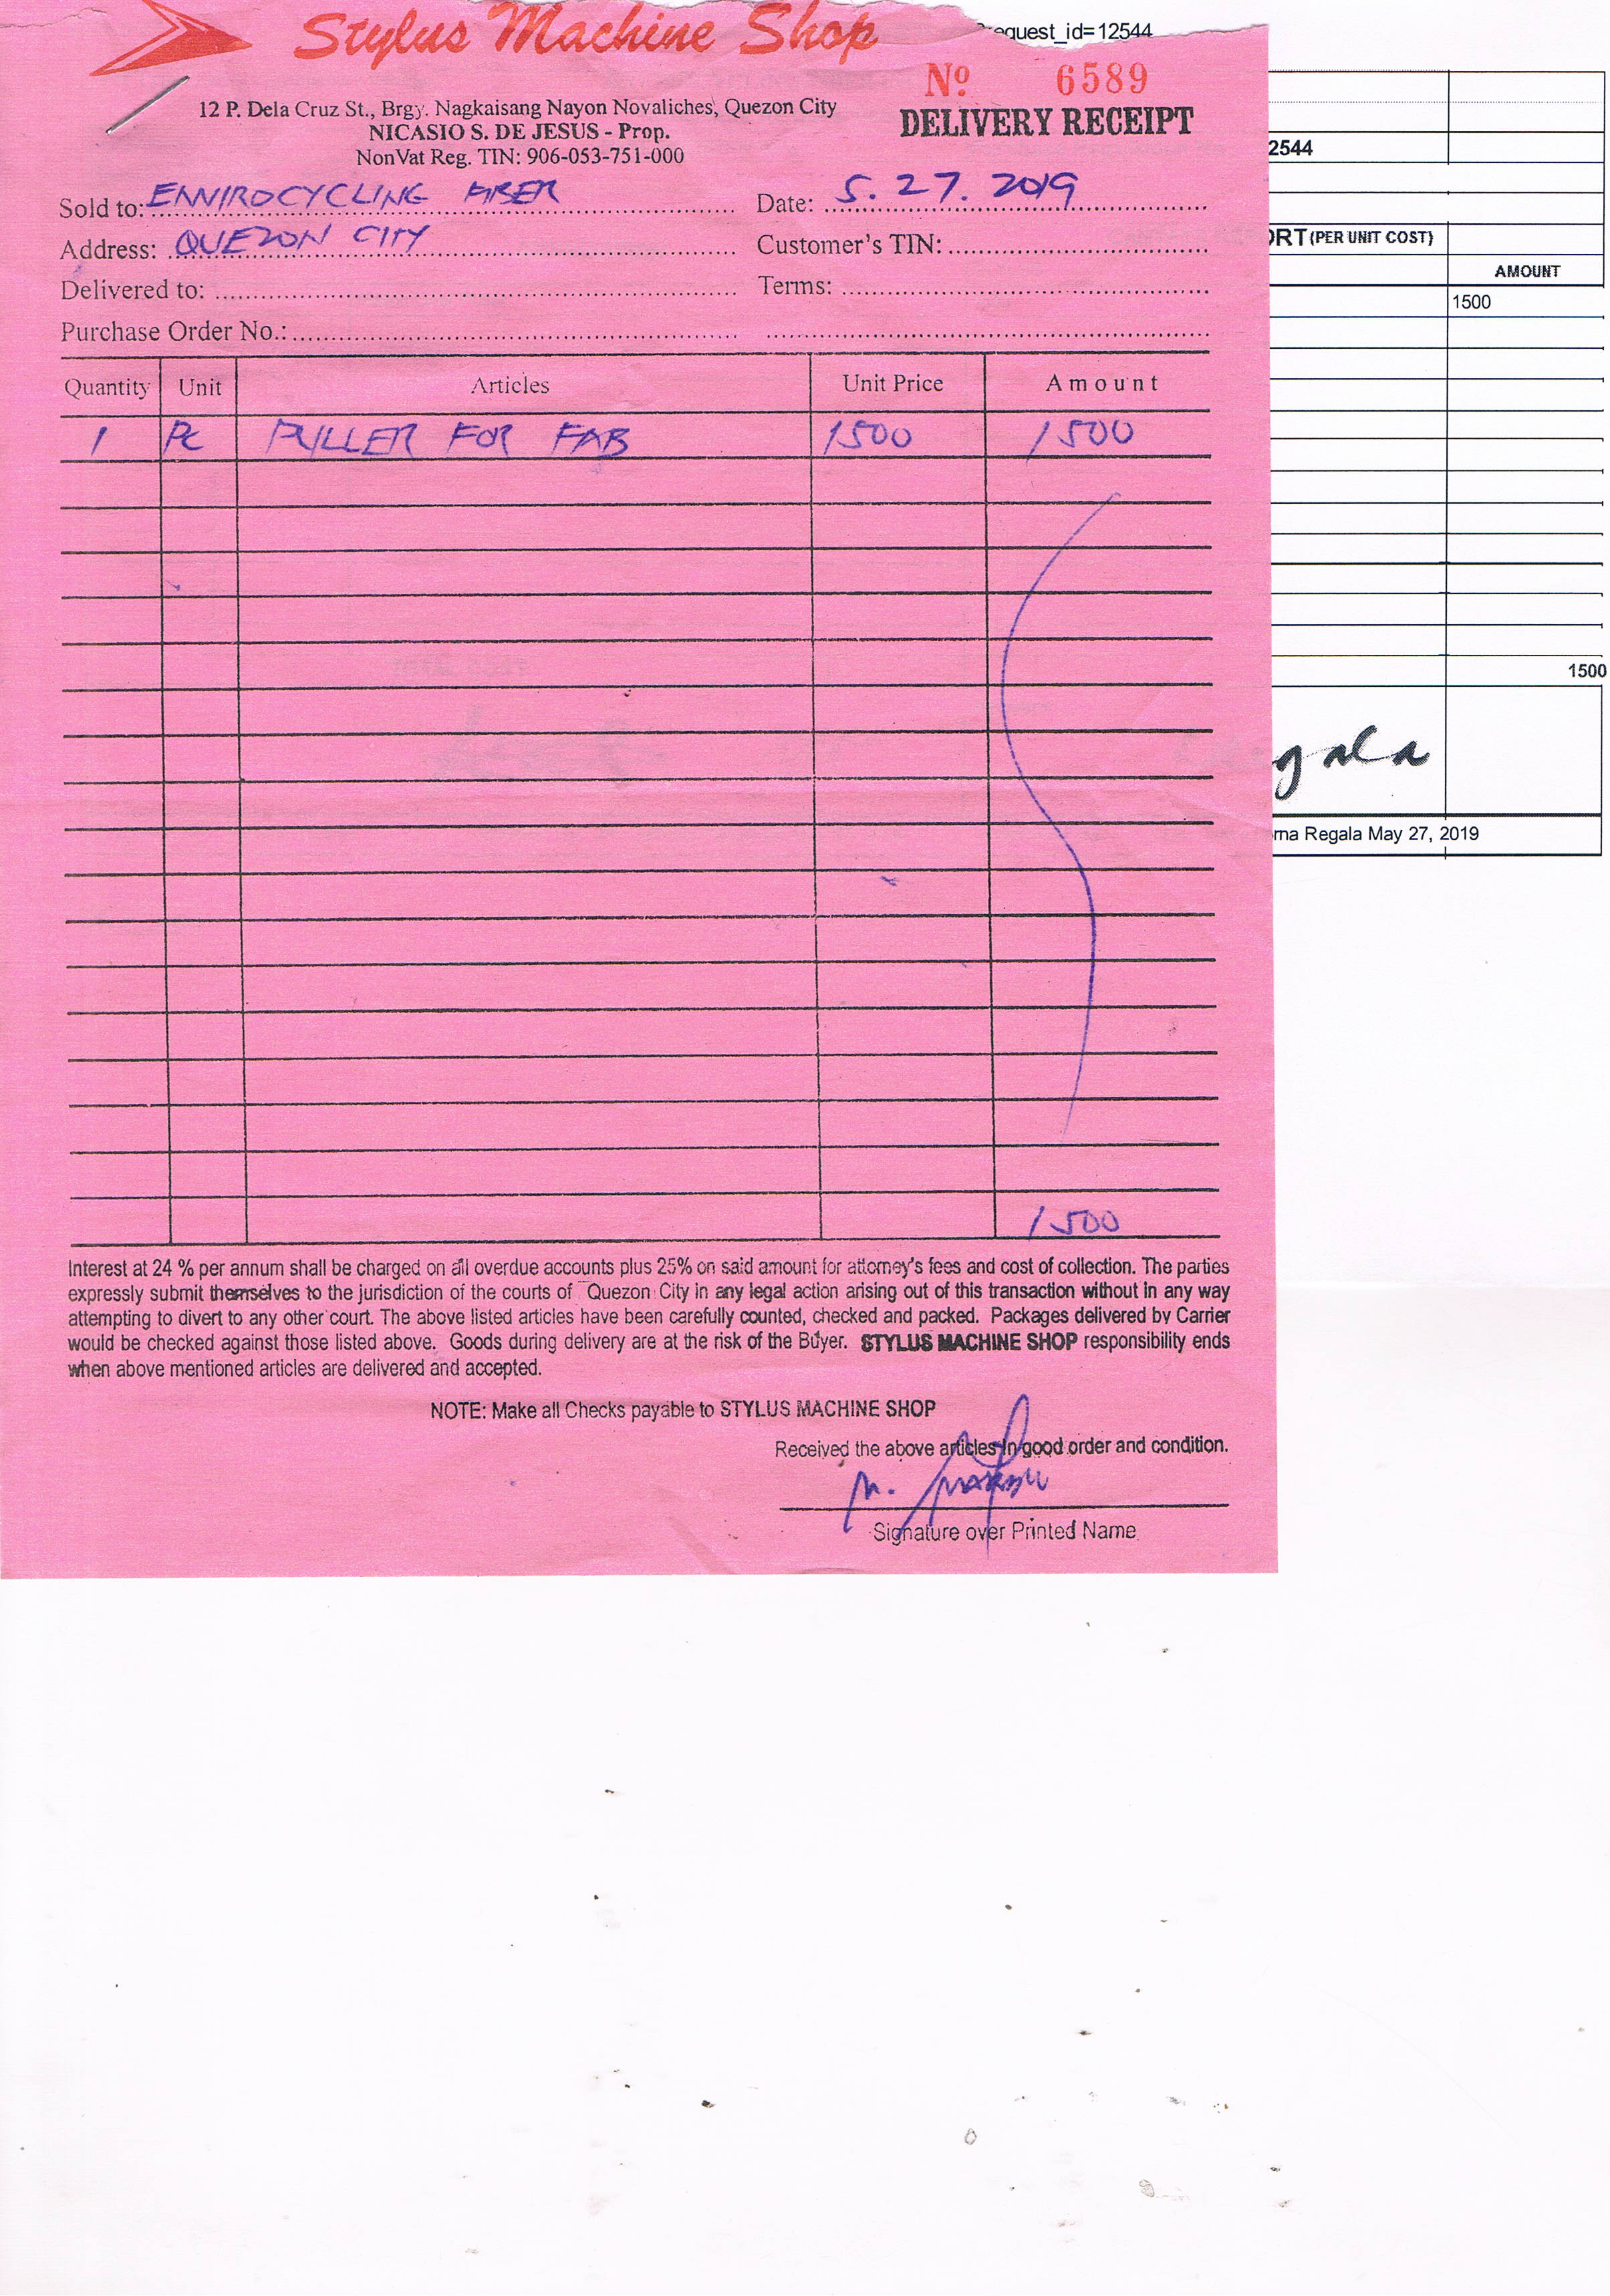 Stylus Machine Shop
equest_id=12544
Nº 6589
12 P. Dela Cruz St., Brgy. Nagkaisang Nayon Novaliches, Quezon City
DELIVERY RECEIPT
NICASIO S. DE JESUS - Prop.
NonVat Reg. TIN: 906-053-751-000
2544
Sold to: ENVIROCYCLING FIBER
Date: 5. 27. 2019
Address: QUEZON CITY
Customer's TIN:
ORT (PER UNIT COST)
Delivered to:
Terms:
AMOUNT
1500
Purchase Order No.:
Quantity Unit Articles Unit Price Amount
1 PC PULLER FOR FAB 1500 1500
1500
gala
rna Regala May 27, 2019
1500
Interest at 24 % per annum shall be charged on all overdue accounts plus 25% on said amount for attorney's fees and cost of collection. The parties
expressly submit themselves to the jurisdiction of the courts of Quezon City in any legal action arising out of this transaction without in any way
attempting to divert to any other court. The above listed articles have been carefully counted, checked and packed. Packages delivered by Carrier
would be checked against those listed above. Goods during delivery are at the risk of the Buyer. STYLUS MACHINE SHOP responsibility ends
when above mentioned articles are delivered and accepted.
NOTE: Make all Checks payable to STYLUS MACHINE SHOP
Received the above articles in good order and condition.
Signature over Printed Name